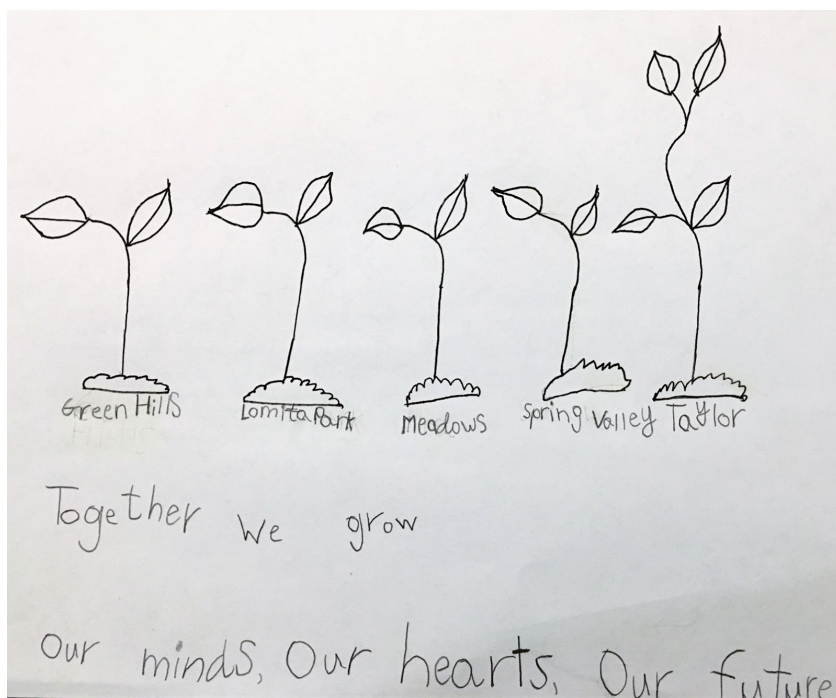 Green Hills Lomita Park Meadows Spring Valley Taylor
Together we grow
Our minds, Our hearts, Our future